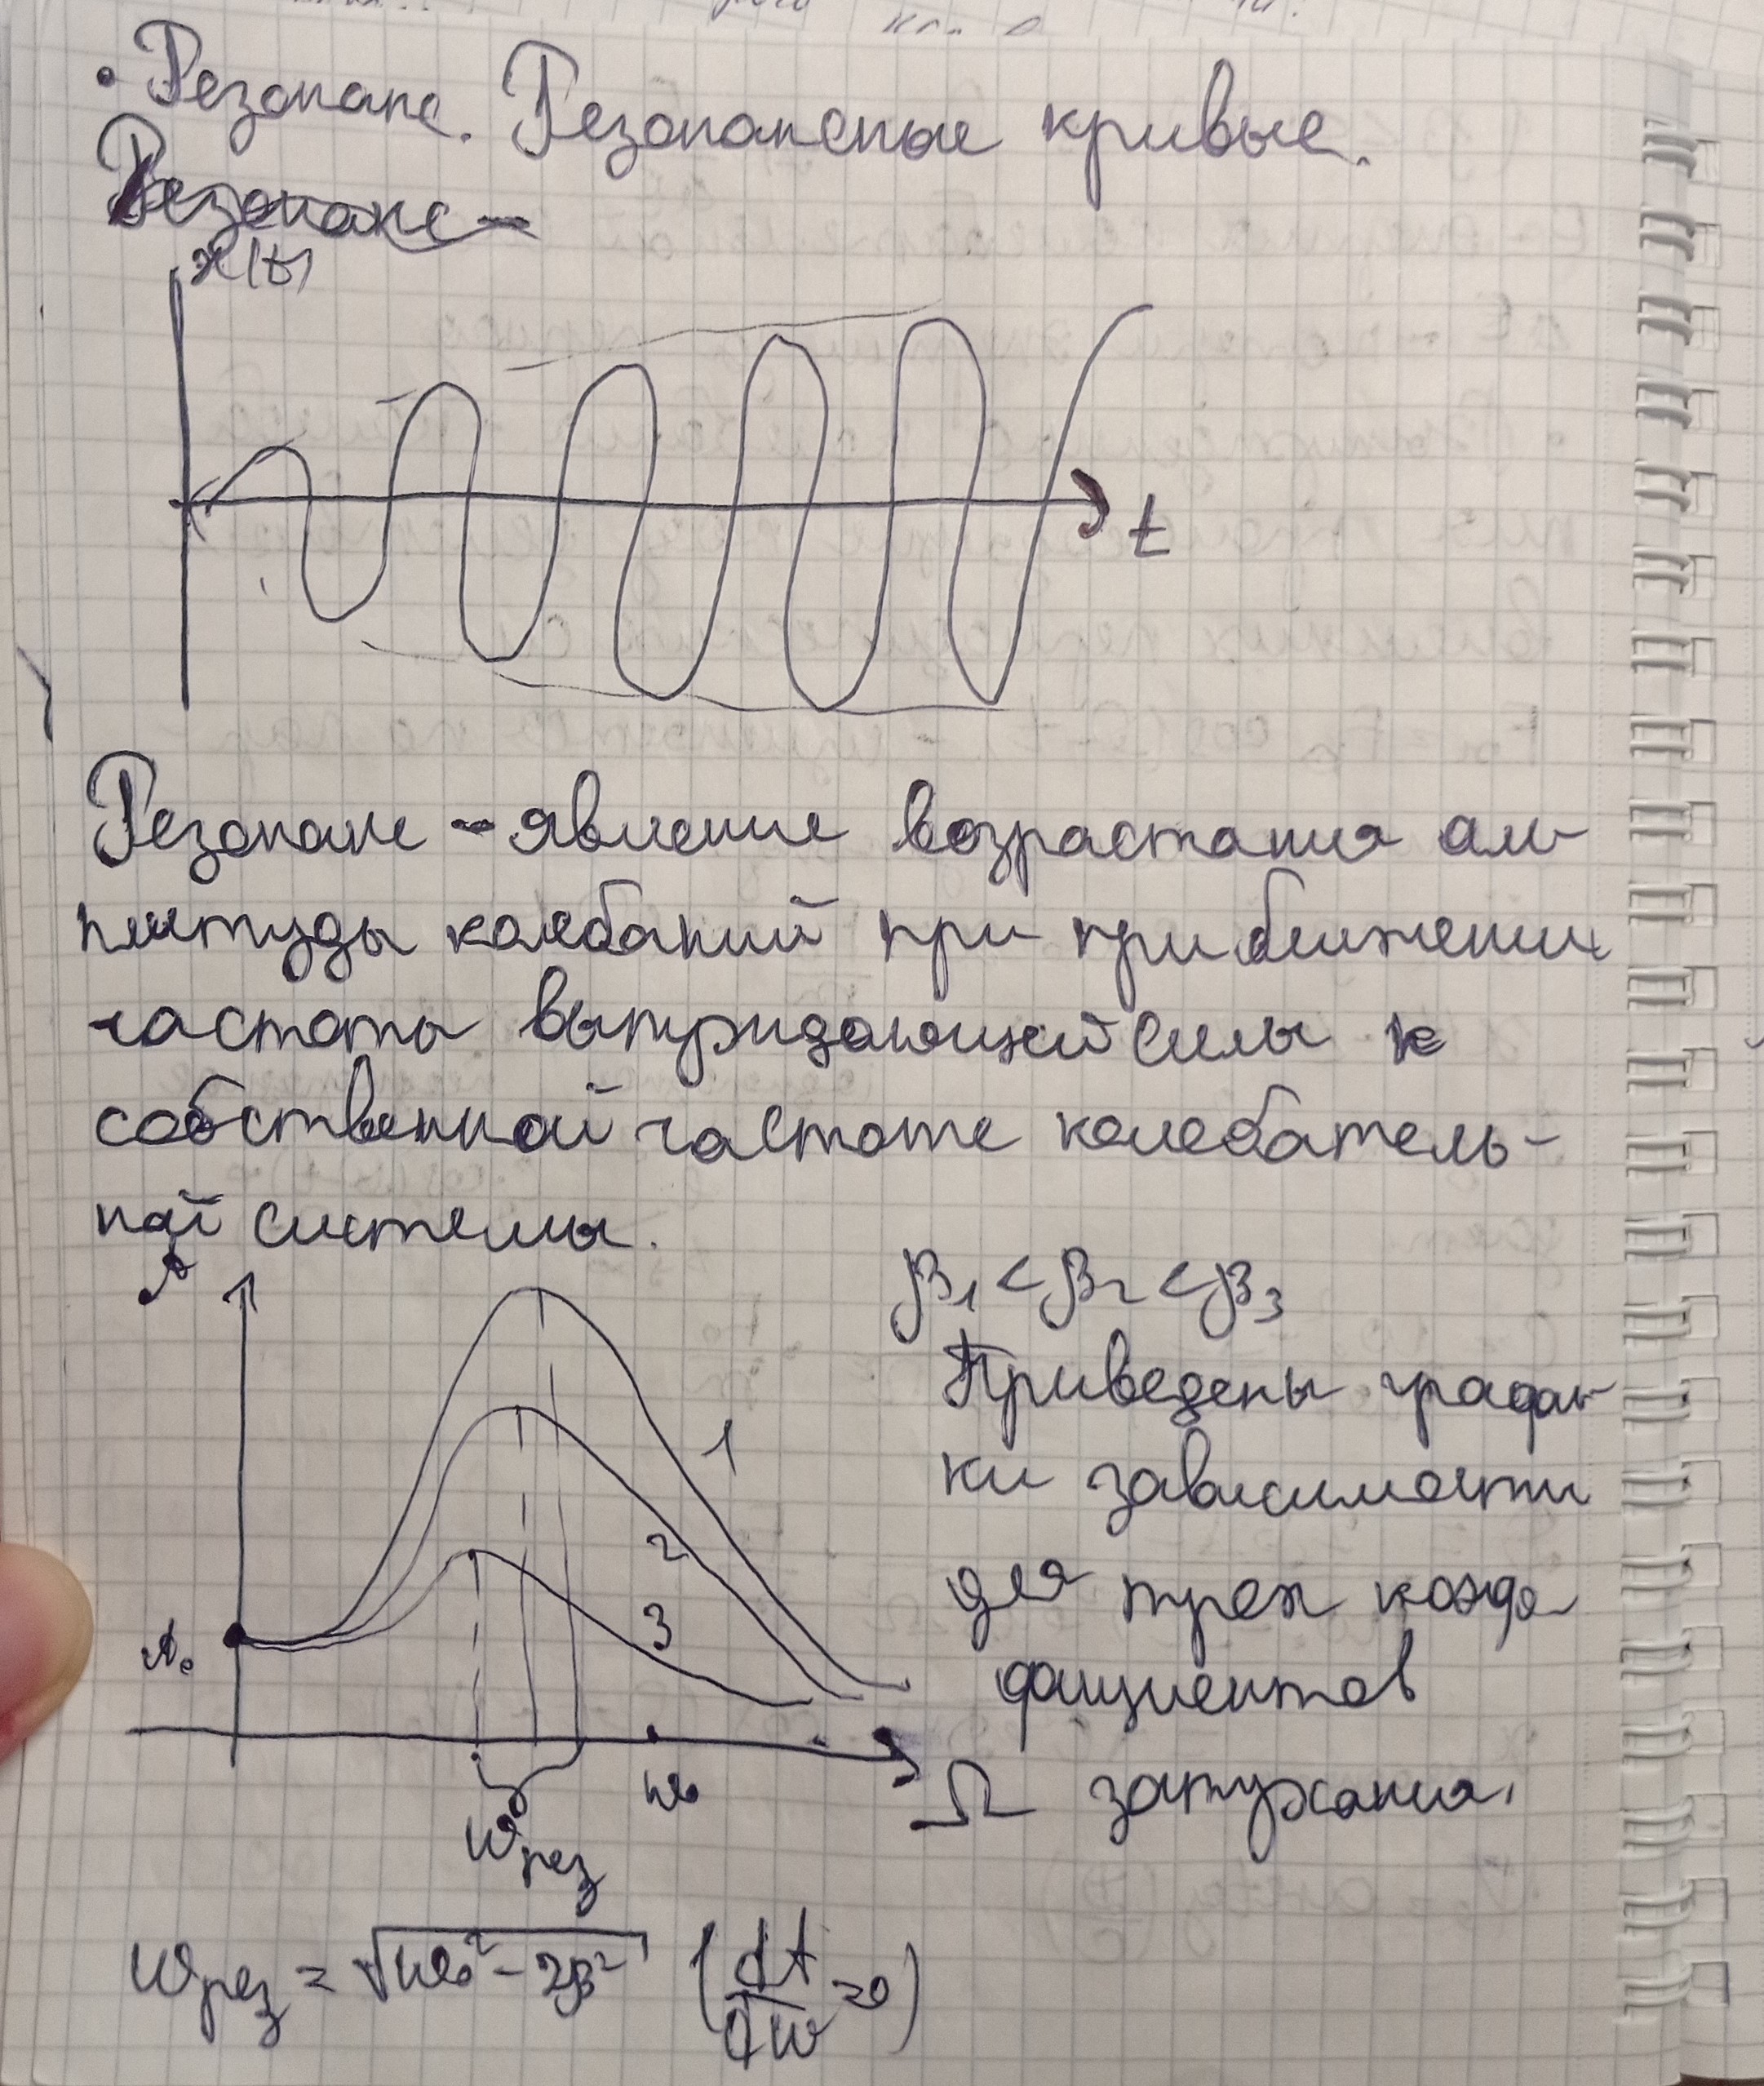 • Резонанс. Резонансные кривые.
Резонанс –
x(t)
t
Резонанс – явление возрастания ам-
плитуды колебаний при приближении
частоты вынуждающей силы к
собственной частоте колебатель-
ной системы.
A
β₁ < β₂ < β₃
Приведены графи-
ки зависимости
для трех коэф-
фициентов
затухания.
1
2
3
A₀
ω₀
Ω
ωрез
ωрез = √(ω₀² - 2β²) (dA/dω = 0)